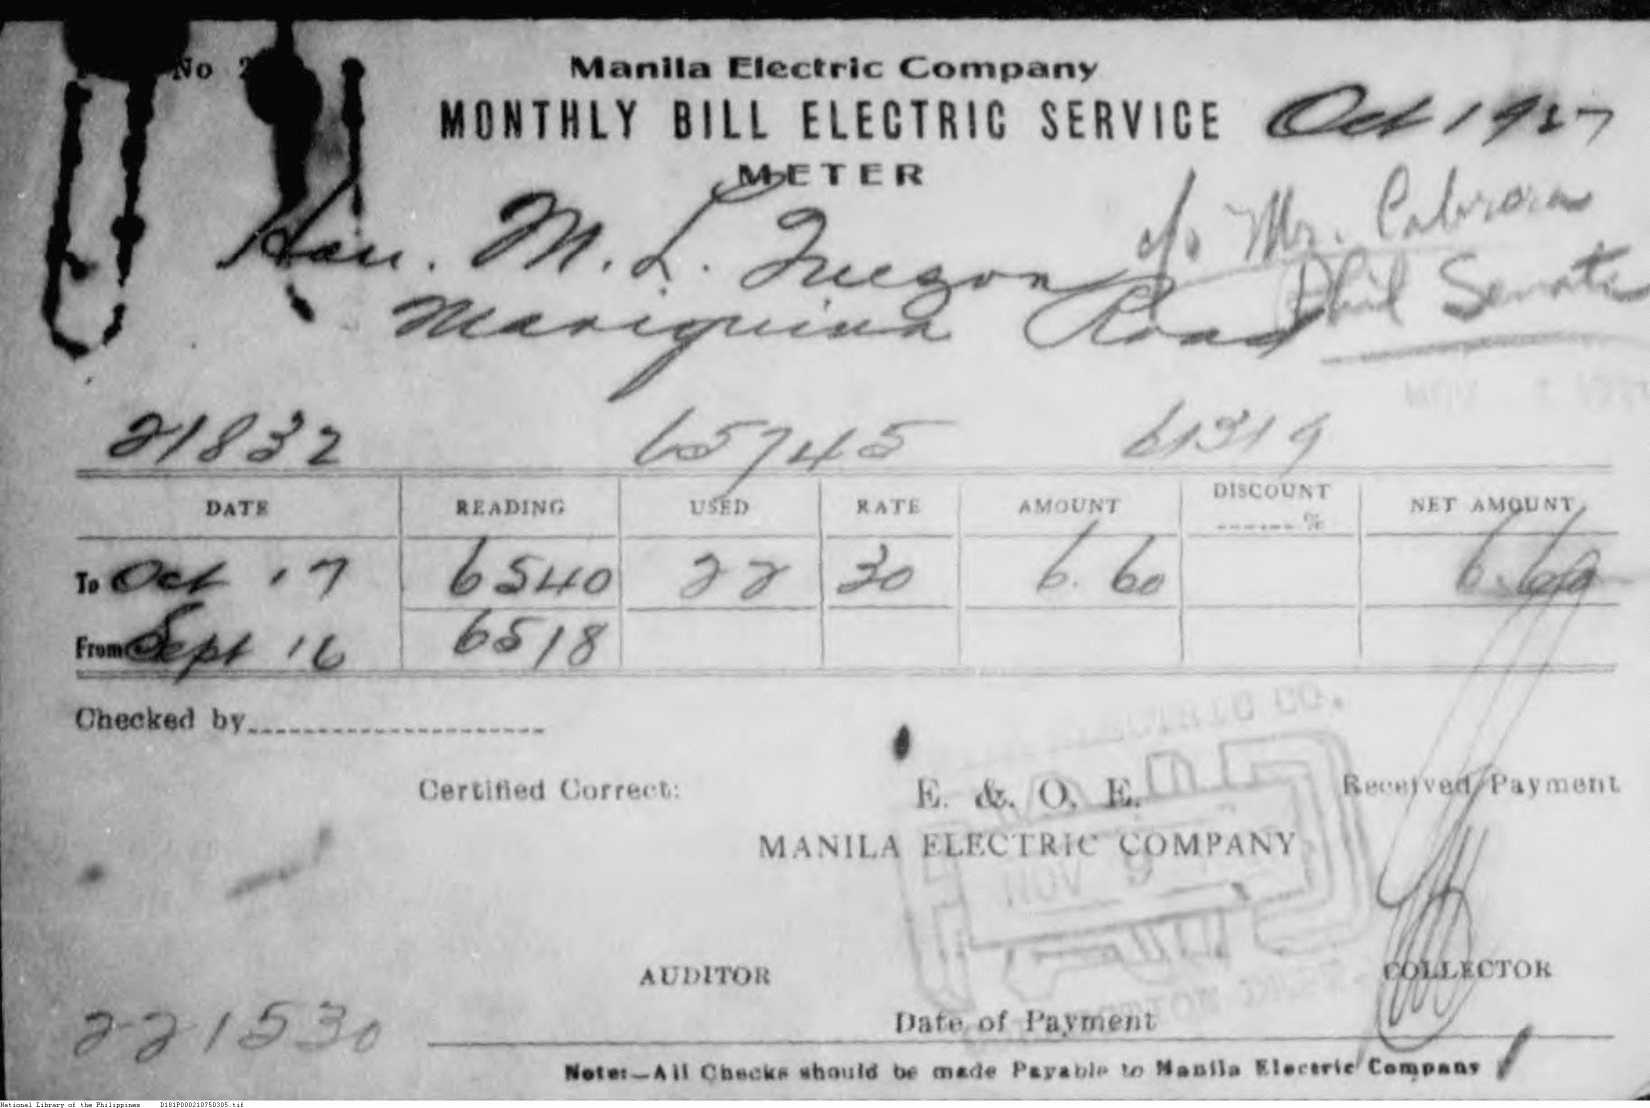 No 2
Manila Electric Company
MONTHLY BILL ELECTRIC SERVICE Oct 1927
METER
Hon. M. L. Quezon c/o Mr. Cabrera
Mariquina Road Phil Senate
NOV
21832 65745 61319
DATE READING USED RATE AMOUNT DISCOUNT NET AMOUNT
------%
To Oct 17 6540 22 30 6.60 6.60
From Sept 16 6518
Checked by
ELECTRIC CO.
Certified Correct: E. & O. E. Received Payment
MANILA ELECTRIC COMPANY
NOV 9
AUDITOR COLLECTOR
221530 Date of Payment
Note:—All Checks should be made Payable to Manila Electric Company
National Library of the Philippines D101P000210750305.tif